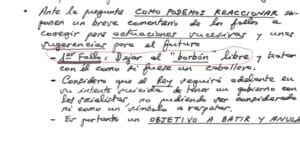 • Ante la pregunta COMO PODEMOS REACCIONAR se
ponen un breve comentario de los fallos a
corregir para actuaciones sucesivas y unas
sugerencias para el futuro
- 1er Fallo: Dejar al "borbón" libre y tratar
con él como si fuese un caballero.
- Considera que el Rey seguirá adelante en
su intento suicida de tener un gobierno con
los socialistas, no pudiendo ser considerado
ni como un símbolo a respetar.
- Es por tanto un OBJETIVO A BATIR Y ANULA